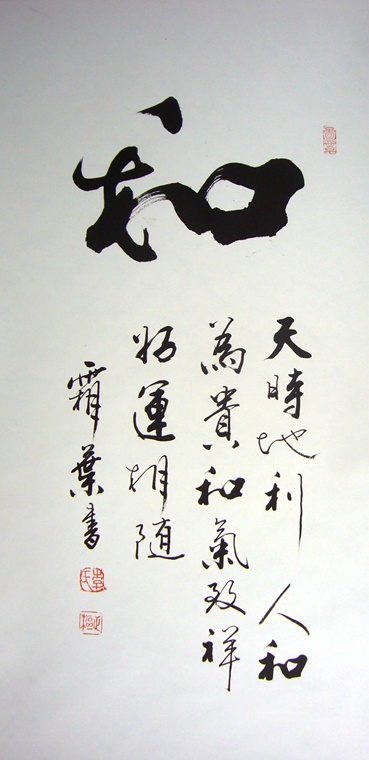 和
天時地利 人和
為貴和氣致祥
好運相随
霜葉書